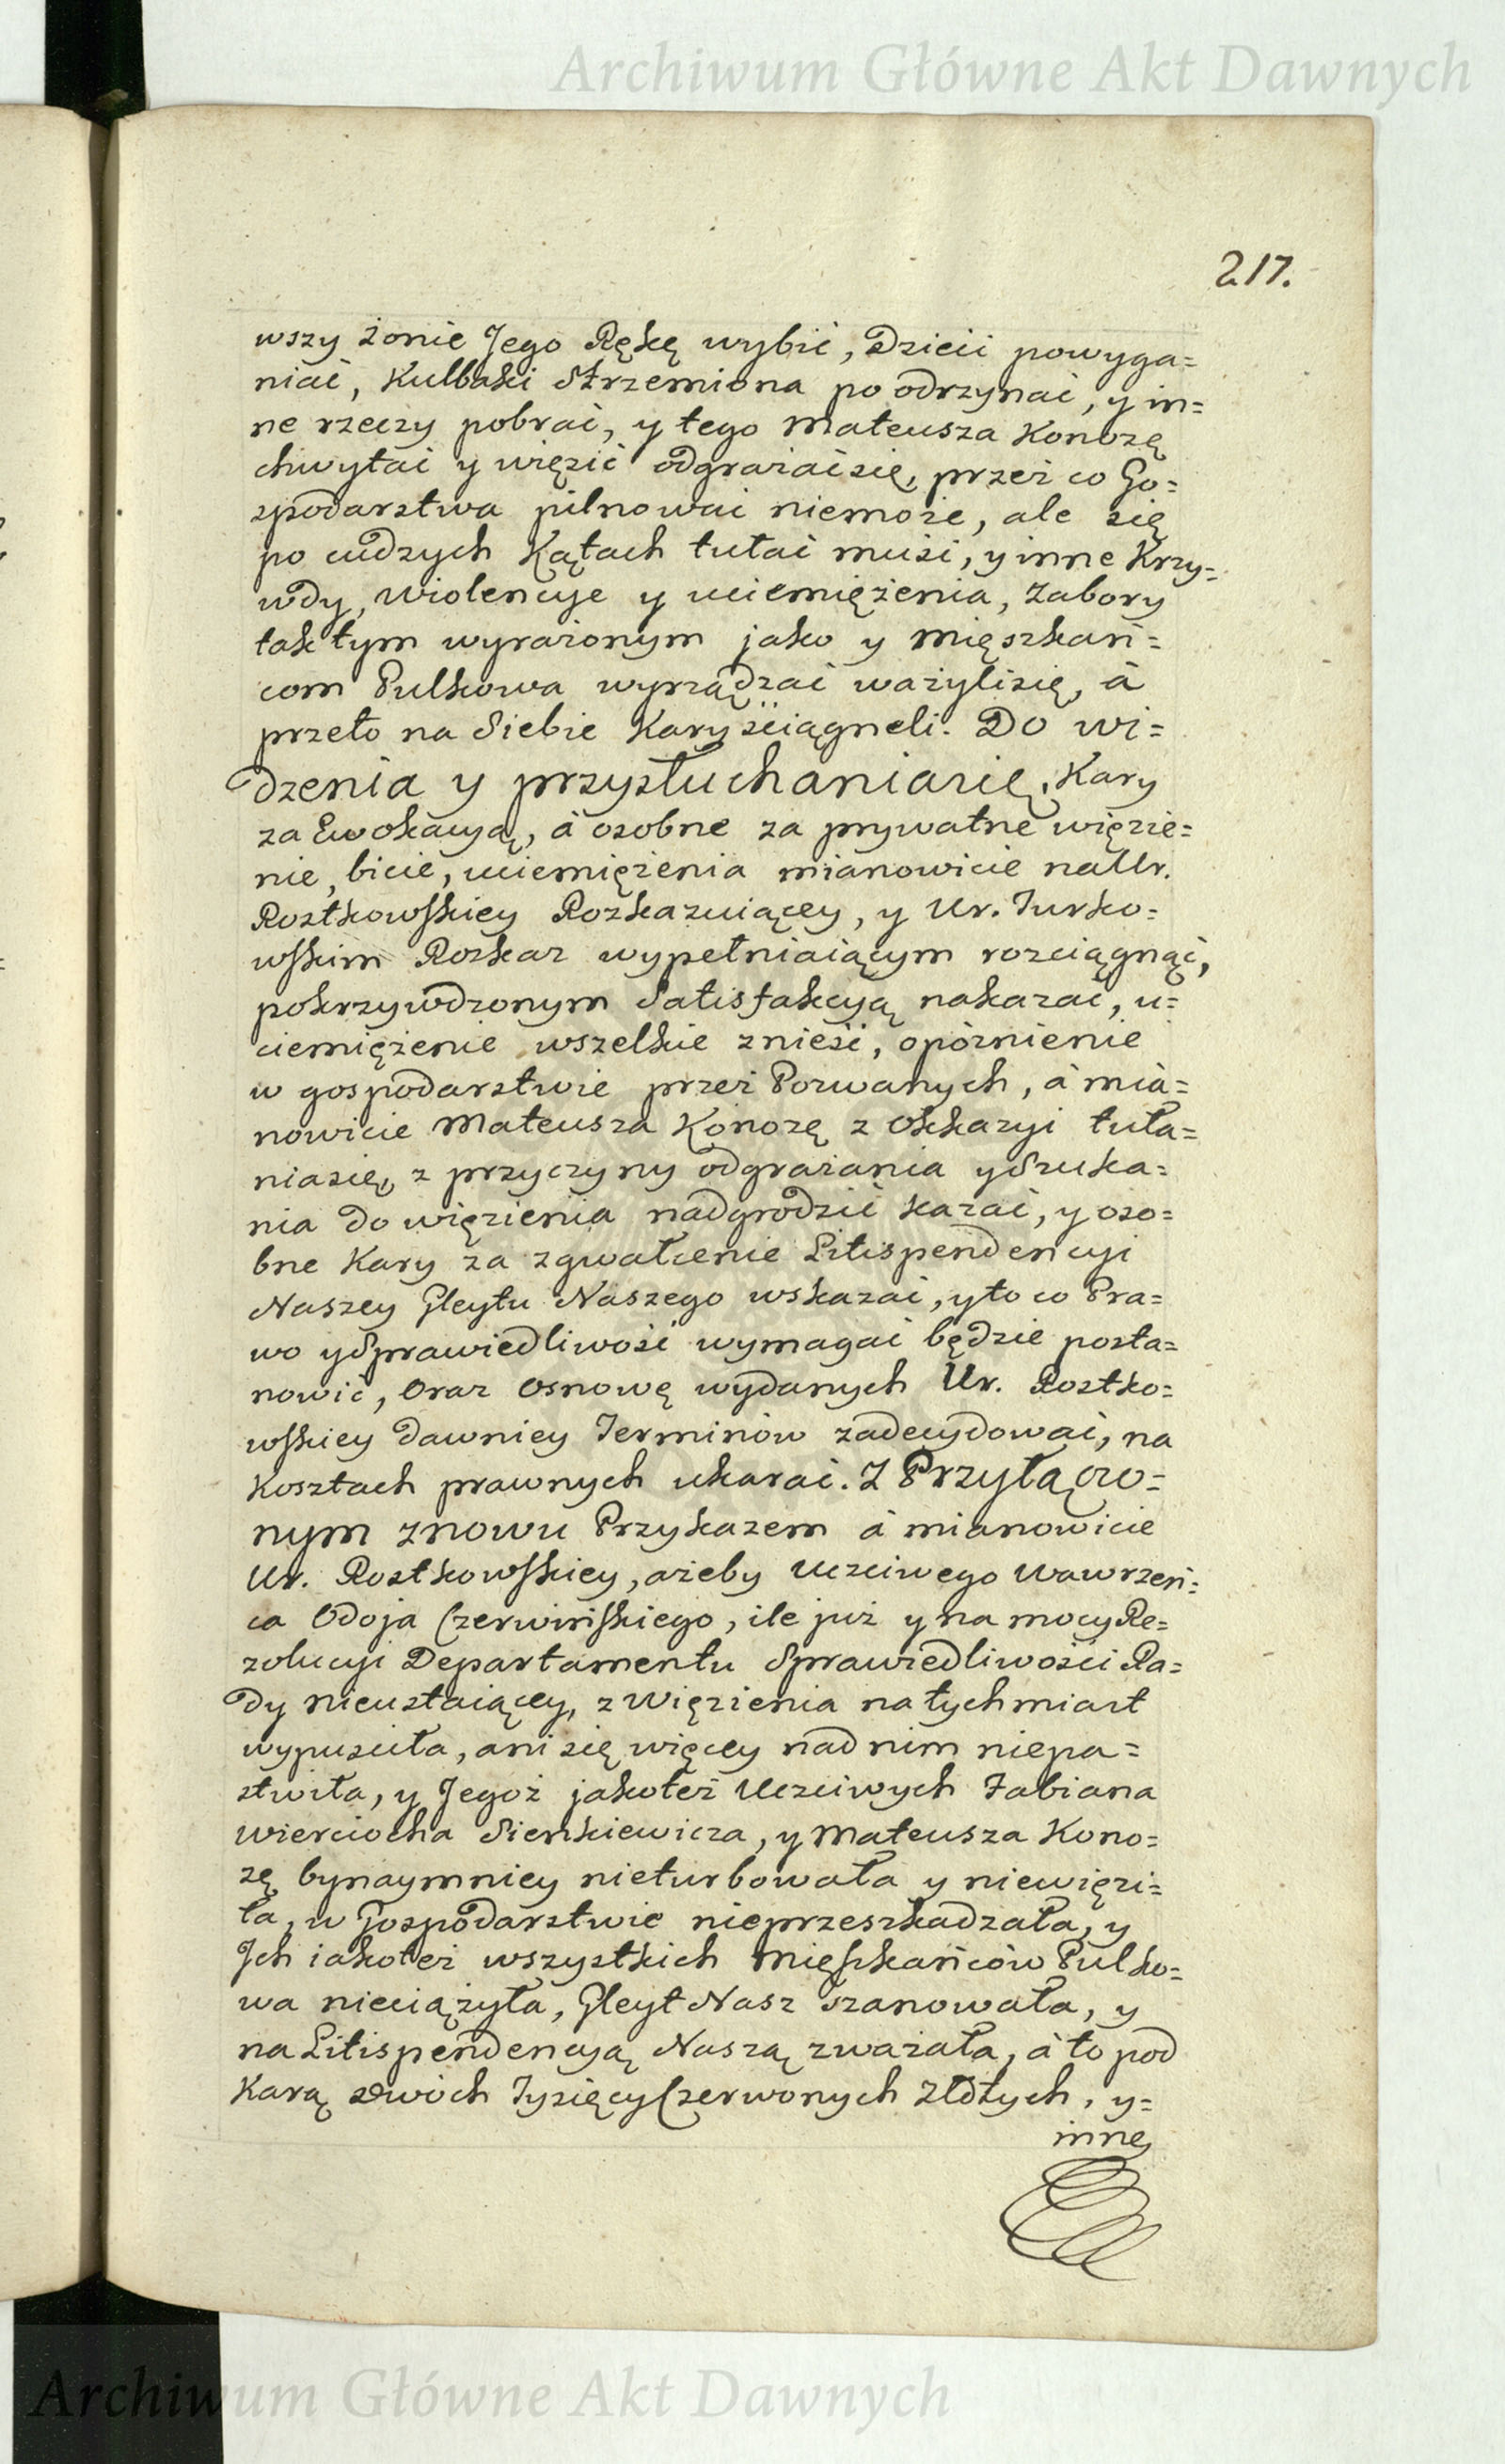 Archiwum Główne Akt Dawnych
217.
wszy żonie Jego Rękę wybić, Dzieci powyga=
niać, Kulbaki Strzemiona po odrzynać, y in=
ne rzeczy pobrać, y tego Mateusza Konozę
chwytać y więzić odgrażaćsię, przez co Go=
spodarstwa pilnować niemoże, ale się
po cudzych Kątach tułać muśi, y inne Krzy=
wdy, Wiolencye y uciemiężenia, Zabory
tak tym wyrażonym jako y Mięszkań=
com Pulkowa wyrządzać ważylisię, à
przeto na Siebie Kary śćiągneli. Do wi=
dzenia y przysłuchaniasię, Kary
za Ewokacyą, à osobne za prywatne więzie=
nie, bicie, uciemiężenia mianowicie na Ur.
Rostkowskiey Rozkazuiącey, y Ur. Turko=
wskim Rozkaz wypełniaiącym rozciągnąć,
pokrzywdzonym Satisfakcyą nakazać, u=
ciemiężenie wszelkie znieść, opóźnienie
w gospodarstwie przez Pozwanych, à mia=
nowicie Mateusza Konozę z Okkazyi tuła=
niasię, z przyczyny odgrażania y Szuka=
nia do więzienia nadgrodzić kazać, y oso=
bne Kary za zgwałcenie Litispendencyi
Naszey Gleytu Naszego wskazać, y to co Pra=
wo y Sprawiedliwość wymagać będzie posta=
nowić, Oraz Osnowę wydanych Ur. Rostko=
wskiey dawniey Terminów zadecydować, na
Kosztach prawnych ukarać. Z Przyłączo=
nym znowu Przykazem à mianowicie
Ur. Rostkowskiey, ażeby Uczciwego Wawrzeń=
ca Odoja Czerwińskiego, ile już y na mocy Re=
zolucyi Departamentu Sprawiedliwości Ra=
dy nieustaiącey, z Więzienia natychmiast
wypuściła, ani się więcey nad nim niepa=
stwiła, y Jegoż jakoteż Uczciwych Fabiana
Wierciocha Sienkiewicza, y Mateusza Kono=
zę bynaymniey nieturbowała y niewięzi=
ła, w Gospodarstwie nieprzeszkadzała, y
Ich iakoteż wszystkich Mięszkańców Pulko=
wa nieciążyła, Gleyt Nasz szanowała, y
na Litispendencyą Naszą zważała, à to pod
Karą dwóch Tysięcy Czerwonych Złotych, y=
inne
Archiwum Główne Akt Dawnych